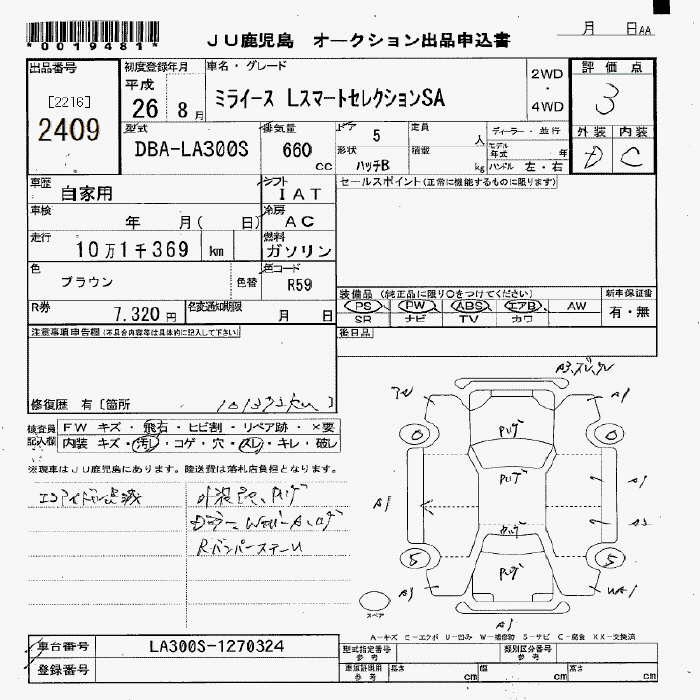 *0019481*
ＪＵ鹿児島　オークション出品申込書
月　日AA
出品番号
[2216]
2409
初度登録年月
平成
26 8月
車名・グレード
ミライース LスマートセレクションSA
2WD
・
4WD
評価点
3
外装 内装
D C
型式
DBA-LA300S
排気量
660
cc
ドア 5
形状 ハッチB
定員 人
積載 kg
ディーラー・並行
モデル年式 年
ハンドル 左・右
車歴
自家用
シフト
IAT
セールスポイント(正常に機能するものに限ります)
車検
年 月( 日)
冷房
AC
走行
10万1千369 km
燃料
ガソリン
色
ブラウン
色替
色コード
R59
R券
7.320円
名変通知期限
月 日
装備品 (純正品に限り〇をつけてください)
PS PW ABS エアB AW
SR ナビ TV カワ
新車保証書
有・無
注意事項申告欄(不具合内容等は具体的に記入して下さい)
後日品
修復歴 有[箇所 ]
101373km
検査員記入欄
FW キズ・飛石・ヒビ割・リペア跡・×要
内装 キズ・汚レ・コゲ・穴・スレ・キレ・破レ
※現車はＪＵ鹿児島にあります。陸送費は落札店負担となります。
Rバンパースチール
A1
A1
A1
A3
A1
スペア
A-キズ E-エクボ U-凹み W-補修跡 S-サビ C-腐食 XX-交換済
車台番号
LA300S-1270324
登録番号
型式指定番号
参考
類別区分番号
参考
車庫証明用
参考
長さ cm
幅 cm
高さ cm